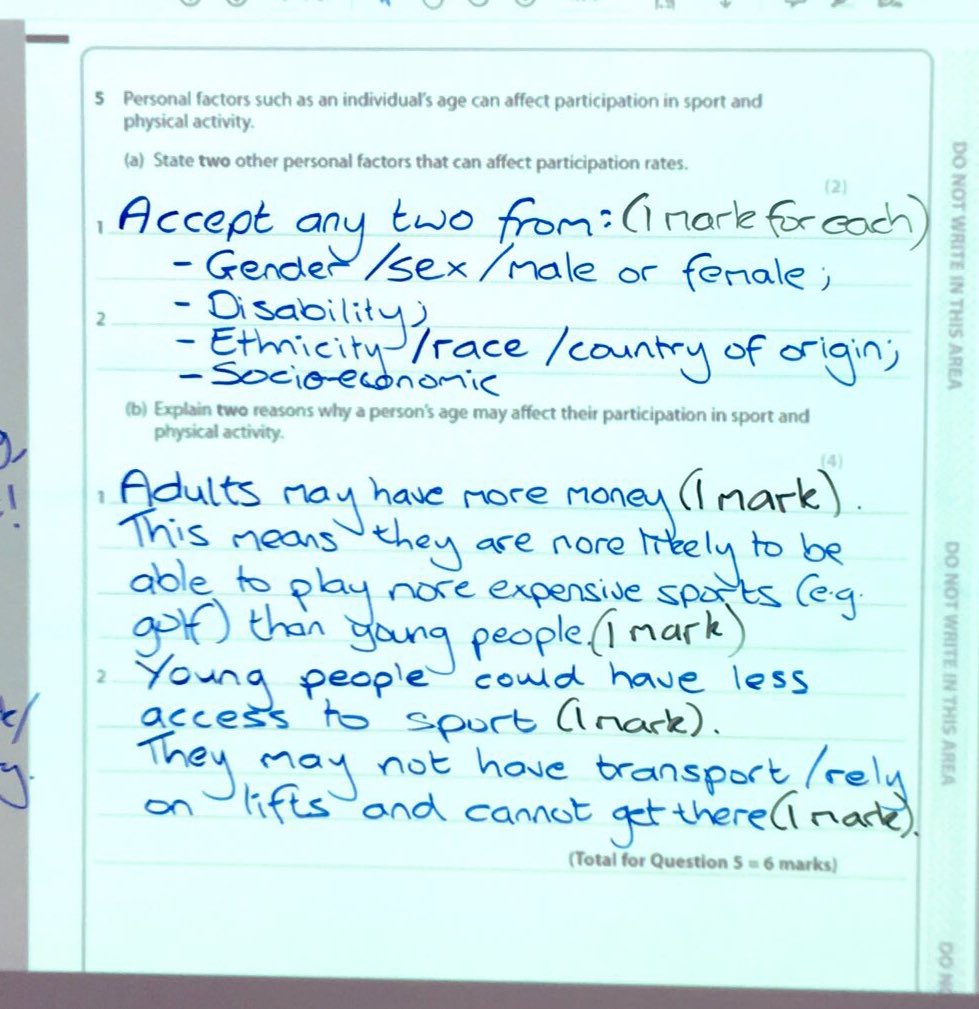 5 Personal factors such as an individual's age can affect participation in sport and
physical activity.
(a) State two other personal factors that can affect participation rates.
(2)
1 Accept any two from: (1 mark for each)
- Gender /sex /male or female;
2 - Disability;
- Ethnicity /race /country of origin;
- Socio-economic
(b) Explain two reasons why a person's age may affect their participation in sport and
physical activity.
(4)
1 Adults may have more money (1 mark).
This means they are more likely to be
able to play more expensive sports (e.g.
golf) than young people. (1 mark)
2 Young people could have less
access to sport (1 mark).
They may not have transport /rely
on lifts and cannot get there (1 mark).
(Total for Question 5 = 6 marks)
DO NOT WRITE IN THIS AREA
DO NOT WRITE IN THIS AREA